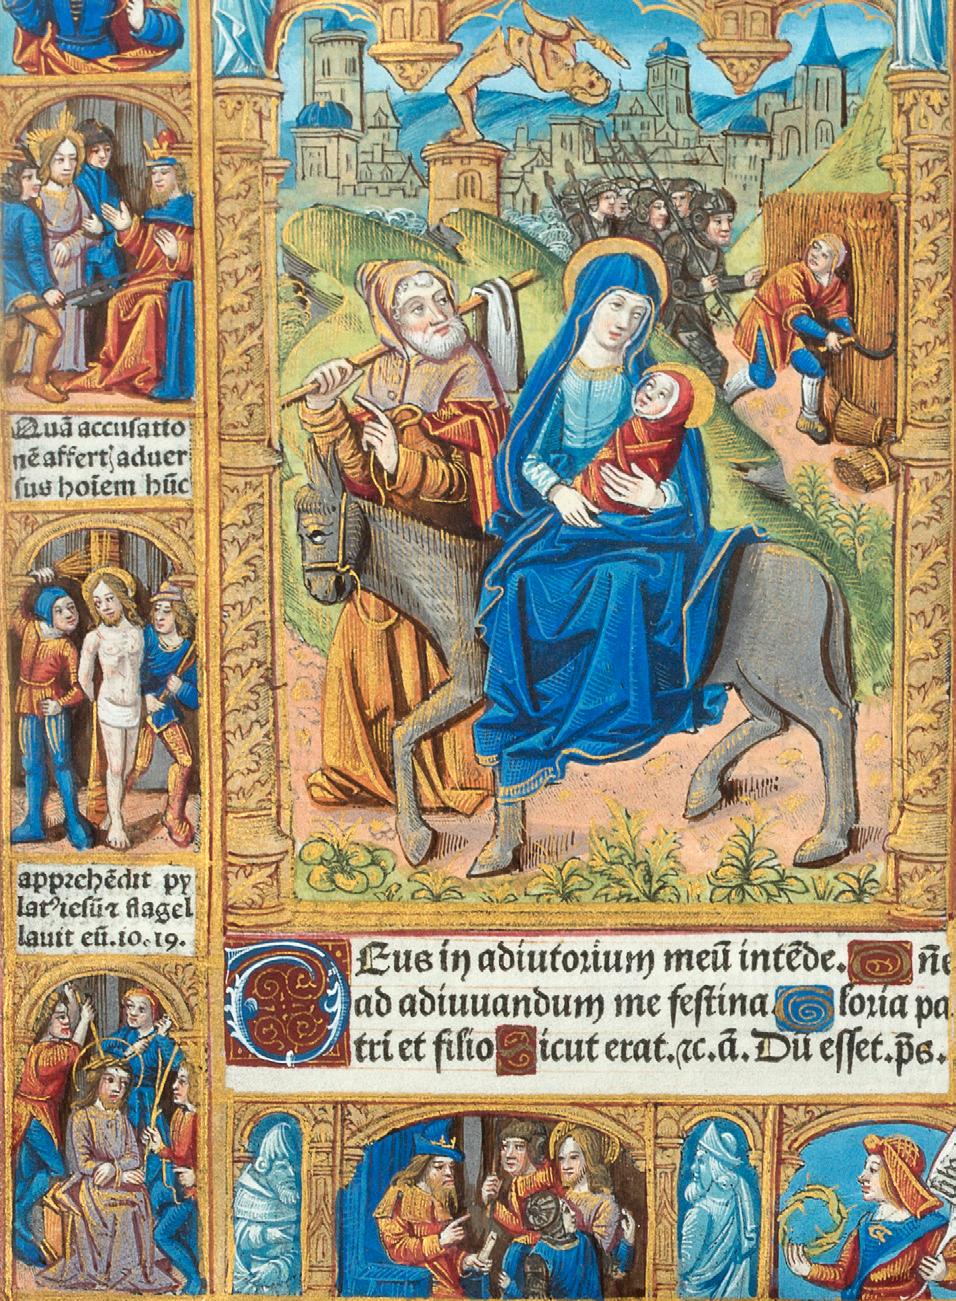 Quā accusatio
nē affertꝭ aduer
sus hoīem hūc
apprehēdit py
latꝰ iesū ⁊ flagel
lauit eū. io. 19.
Deus in adiutorium meū intēde. Dn̄e
ad adiuuandum me festina. Gloria pa
tri et filio Sicut erat. ⁊c. añ. Dū esset. p̄s.